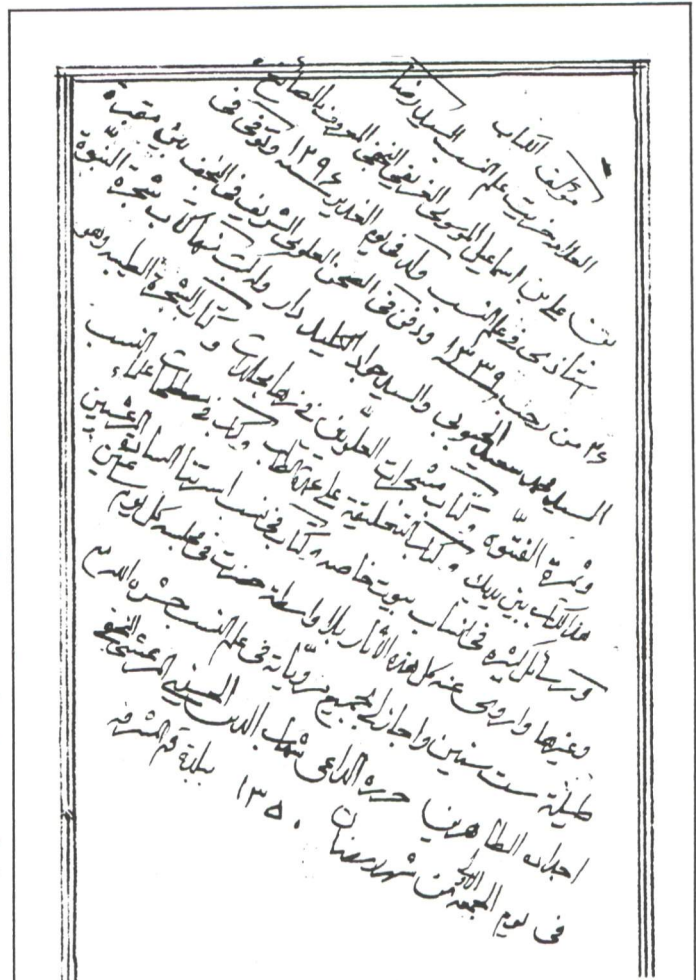 مؤلف الكتاب السيد رضا
العلامة خريت علم النسب السيد رضا
بن علي بن اسماعيل الموسوي الغريفي النجفي المعروف بالصائغ
استاذي في علم النسب ولد في يوم الغدير سنة ١٢٩٦ وتوفي في
٢٤ من رجب سنة ١٣٣٩ ودفن في الصحن العلوي الشريف في النجف بين مقبرة
السيد محمد سعيد الحبوبي والسيد جواد الكليدار وله كتب منها كتاب شجرة النبوة
وثمرة الفتوة وكتاب مشجرات العلويين في مجلدات وكتاب الشجرة الطيبة وهو
هذا الكتاب بين يديك وكتاب التعليقة على عمدة الطالب وكتاب في علماء النسب
ورسائل كثيرة في انساب بيوت خاصة وكتاب في نسب اسرتنا السادة المرعشيين
وغيرها واروي عنه كل هذه الآثار بلا واسطة حضرت في مجلسه كل يوم
طيلة ست سنين واجاز لي جميع مروياته في علم النسب حشره الله مع
اجداده الطاهرين حرره الداعي شهاب الدين الحسيني المرعشي النجفي
في يوم الجمعة من شهر رمضان ١٣٥٠ ببلدة قم المشرفة